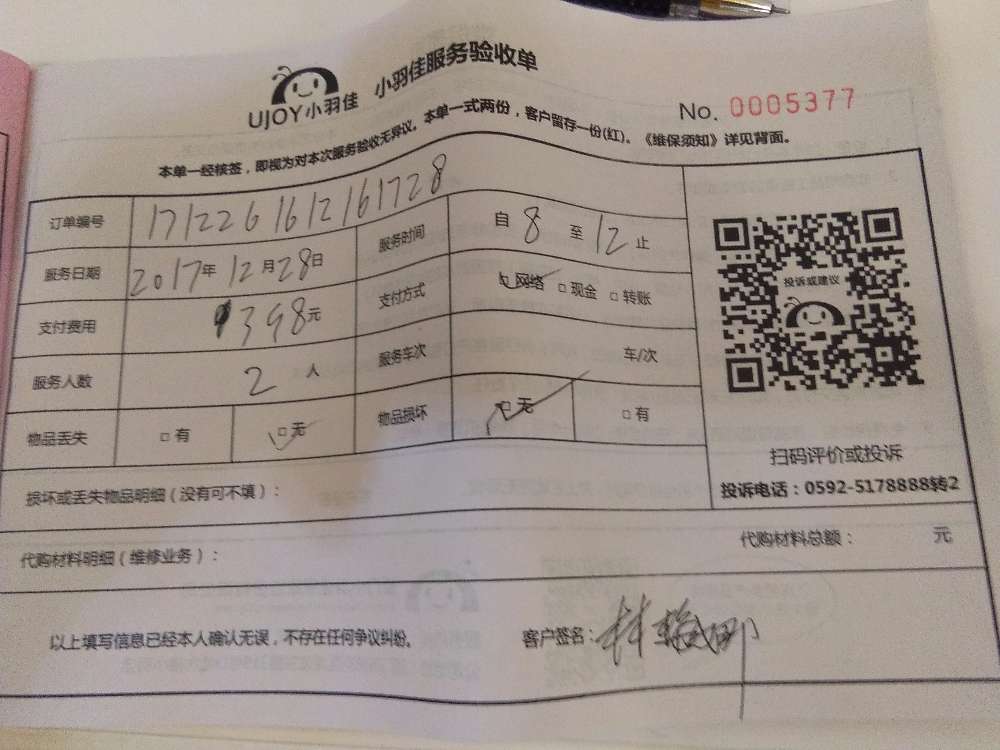 UJOY小羽佳 小羽佳服务验收单
No. 0005377
本单一经核签，即视为对本次服务验收无异议。本单一式两份，客户留存一份(红)。《维保须知》详见背面。
订单编号 1712261612161728
服务日期 2017年12月28日 服务时间 自8至12止
支付费用 398元 支付方式 □网络 □现金 □转账
服务人数 2人 服务车次 车/次
物品丢失 □有 □无 物品损坏 □无 □有
投诉或建议
扫码评价或投诉
投诉电话：0592-5178888转2
损坏或丢失物品明细（没有可不填）：
代购材料明细（维修业务）： 代购材料总额： 元
以上填写信息已经本人确认无误，不存在任何争议纠纷。 客户签名：